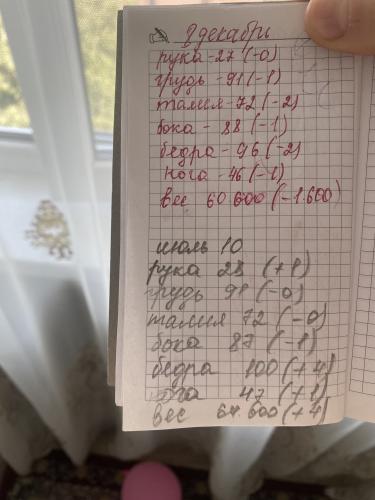 8 декабрь
рука - 27 (-0)
грудь - 91 (-1)
талия - 72 (-2)
бока - 88 (-1)
бедра - 96 (-2)
нога - 46 (-1)
вес 60 600 (-1.600)
июль 10
рука 28 (+1)
грудь 91 (-0)
талия 72 (-0)
бока 87 (-1)
бедра 100 (+4)
нога 47 (+1)
вес 64.600 (+4)